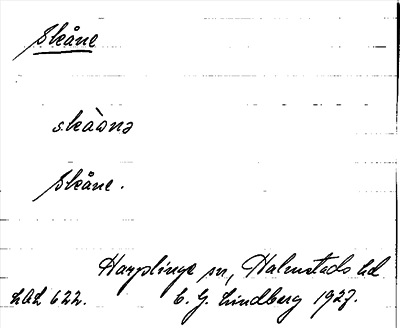 Skåne
skàånə
Skåne.
Harplinge sn, Halmstads hd
LAL 622. C. G. Lindberg 1927.